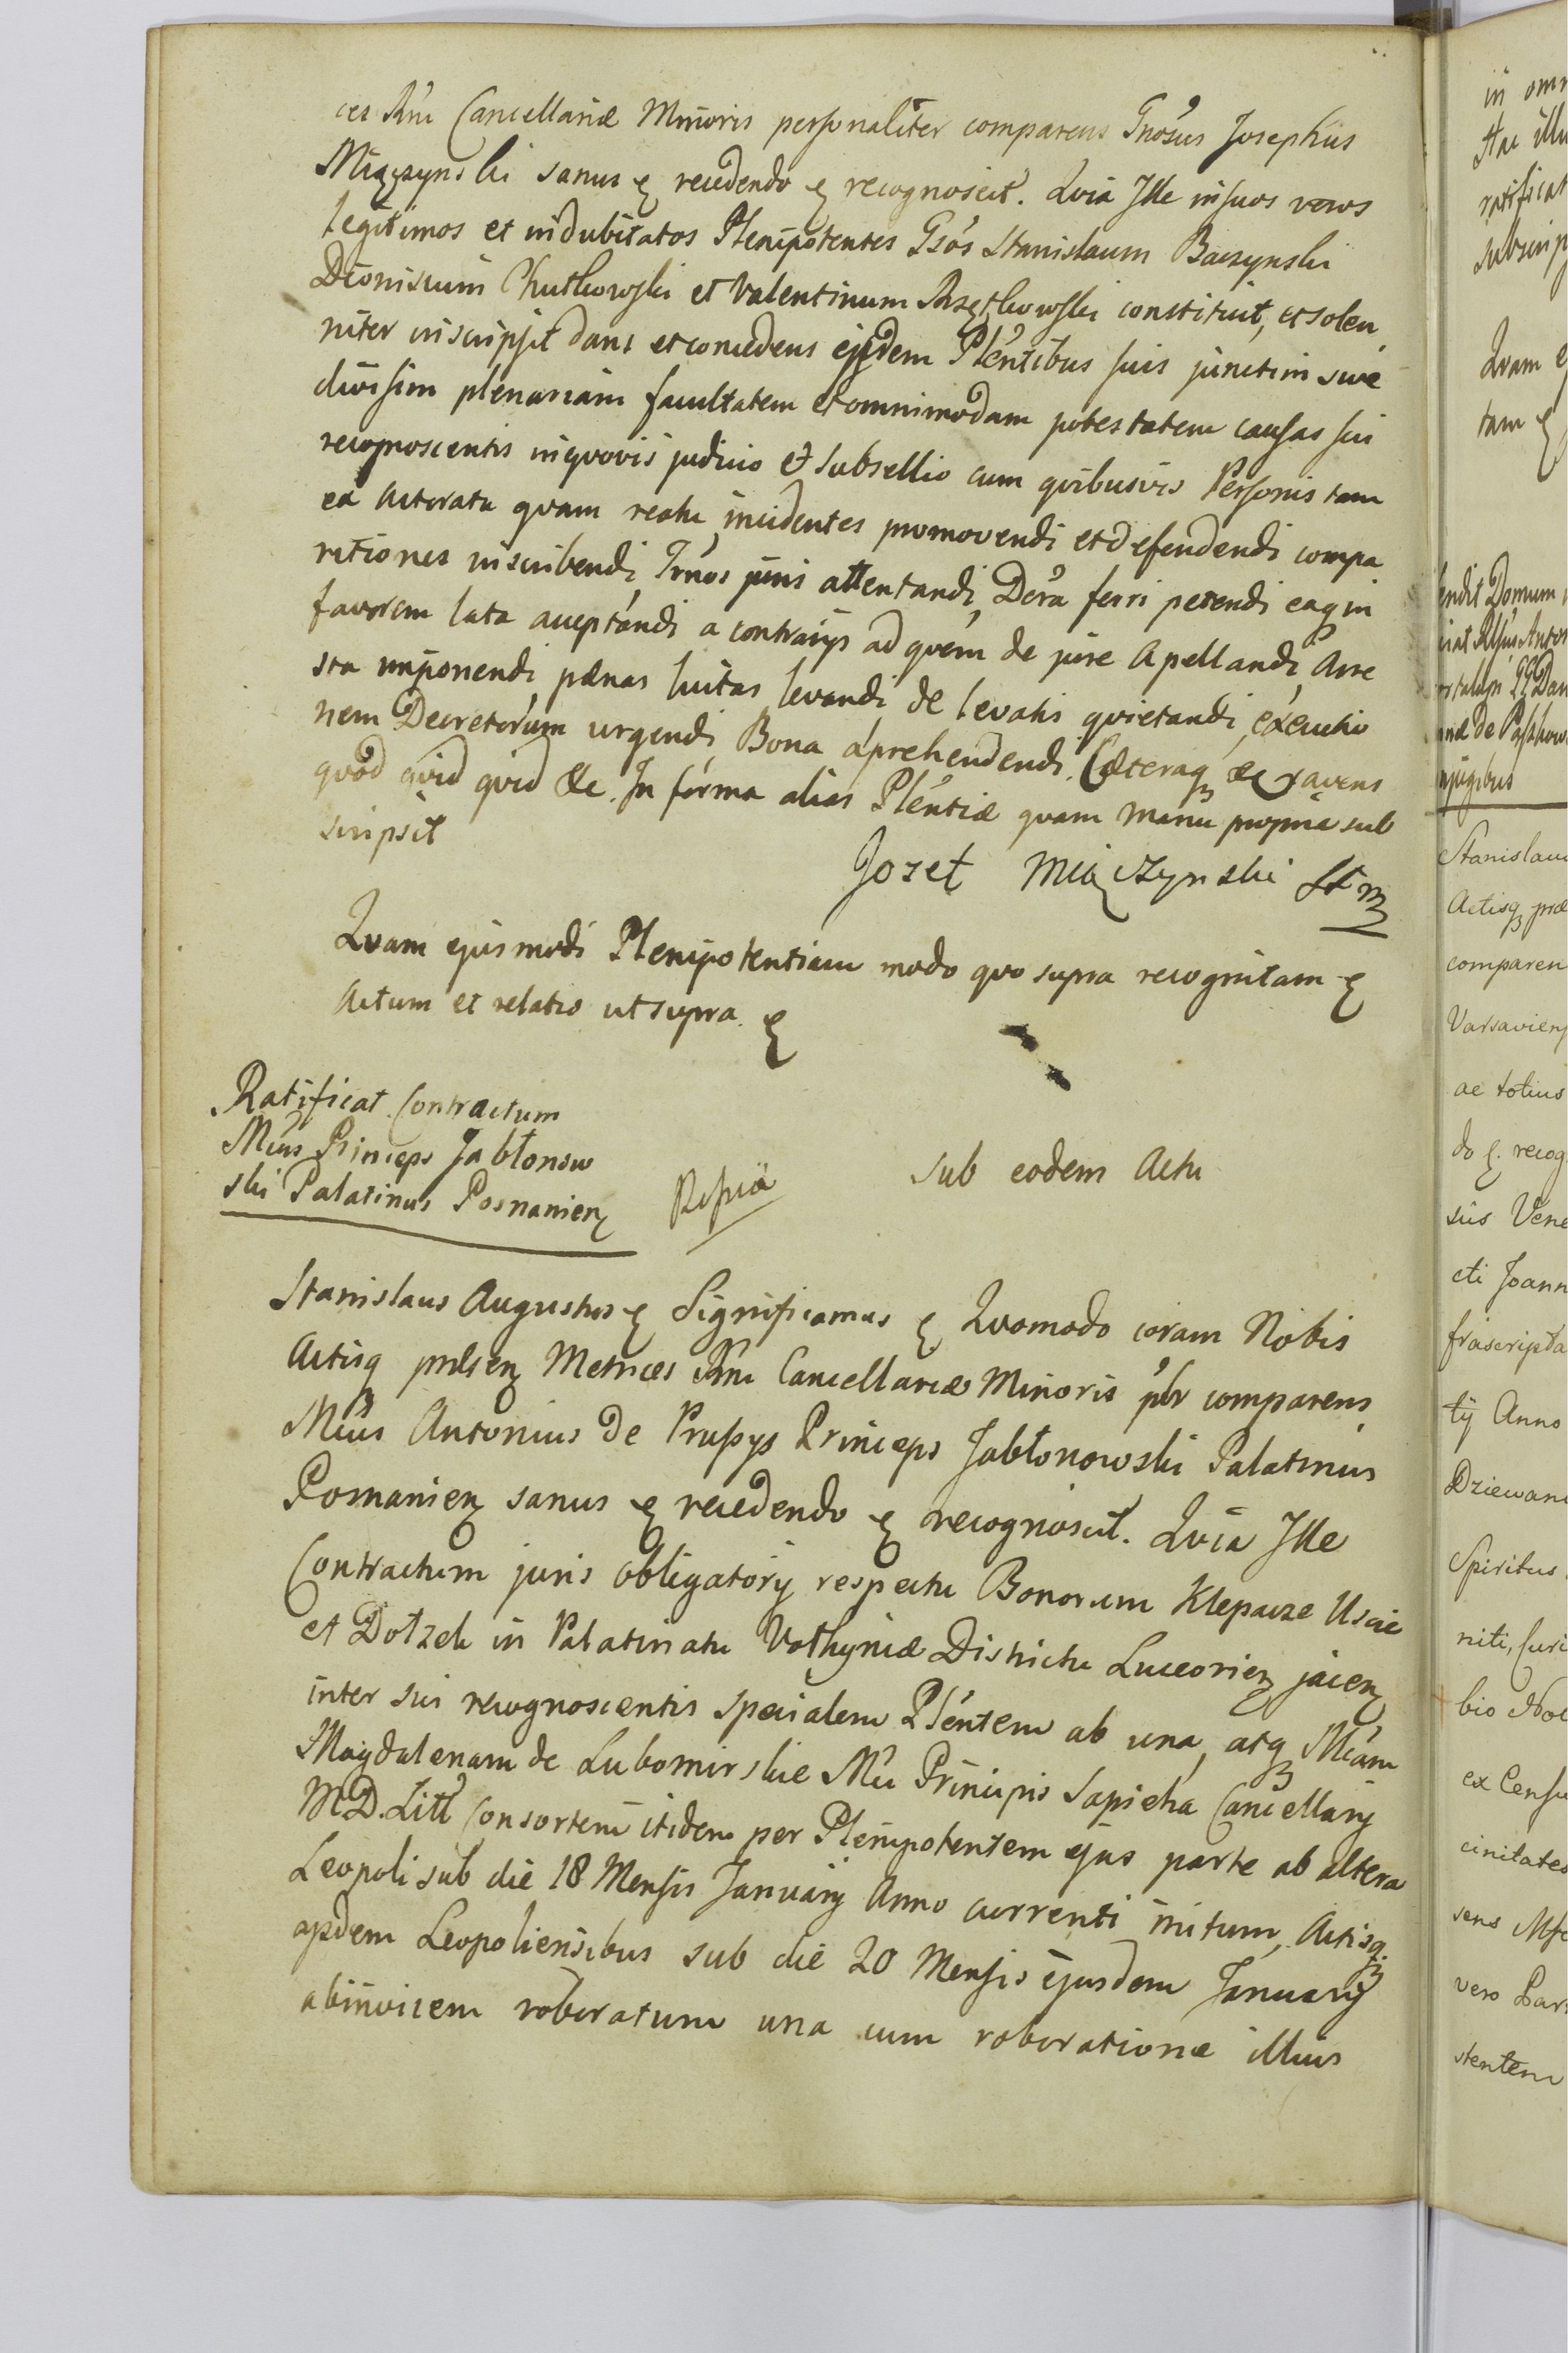 ces Rni Cancellariæ Minoris personaliter comparens Gnosus Josephus
Miączynski sanus &c recedendo &c recognoscit. Qvia Ille in suos veros
legitimos et indubitatos Plenipotentes Gsos Stanislaum Baczynski
Dionisium Chutkowski et Valentinum constituit, et solen
niter inscripsit dans et concedens ejsdem Plentibus suis junctim sive
divisim plenariam facultatem et omnimodam potestatem causas sui
recognoscentis in qvovis judicio et subsellio cum qvibusvis Personis tam
ex Actoratu qvam reatu incidentes promovendi et defendendi compa
ritiones inscribendi, Trnos juris attentandi, Dera ferri petendi eaq in
favorem lata acceptandi a contrarijs ad qvem de jure Apellandi Arre
sta imponendi pænas luitas levandi de levatis qvietandi, executio
nem Decretorum urgendi, Bona aprehendendi. Cæteraq
qvod qvid qvid &c. In forma alias Plentiæ qvam manu propria sub
scripsit
Jozef Miączynski
Qvam ejusmodi Plenipotentiam modo qvo supra recognitam &c
Actum et relatio ut supra &c
Ratificat Contractum
Mcus Princeps Jabłonow
ski Palatinus Posnanien
Sub eodem Actu
Stanislaus Augustus &c Significamus &c Qvomodo coram Nobis
Actisq præsen Metrices Rni Cancellariæ Minoris plr comparens
Mcus Antonius de Prussys Princeps Jabłonowski Palatinus
Posnanien sanus &c recedendo &c recognoscit. Qvia Ille
Contractum juris obligatorij respectu Bonorum Klepacze Uscie
et Dołzek in Palatinatu Vołhyniæ Districtu Luceorien jacen
inter sui recognoscentis specialem Plentem ab una, atq Mcam
Magdalenam de Lubomirskie Mci Principis Sapieha Cancellarij
M.D. Litt Consortem itidem per Plenipotentem ejus parte ab altera
Leopoli sub die 18 Mensis Januarij Anno currenti initum, Actisq
ejsdem Leopoliensibus sub die 20 Mensis ejusdem Januarij
abinvicem roboratum una cum roboratione illius